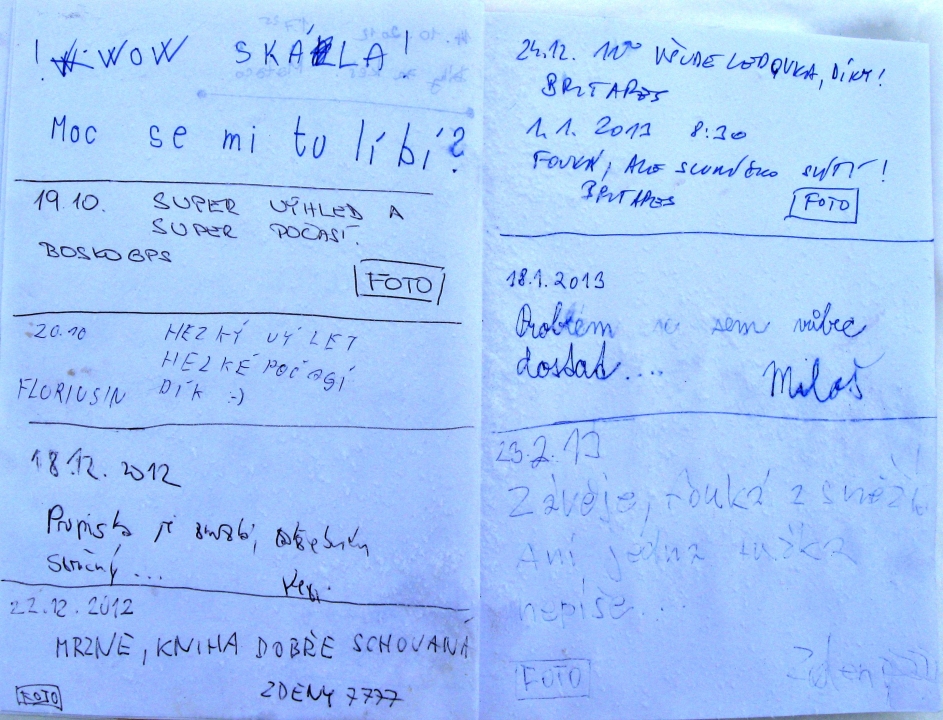 ! WOW SKÁLA!
Moc se mi tu líbí?
19.10. SUPER VÝHLED A
SUPER POČASÍ.
BOSKOGPS
FOTO
20.10 HEZKÝ VÝLET
HEZKÉ POČASÍ
FLORIUSIN DÍK :-)
18.12. 2012
Propiska je
stručný...
22.12.2012
MRZNE, KNIHA DOBŘE SCHOVANÁ
FOTO ZDENY 7777
24.12. VŠUDE LEDOVKA, DÍKY!
BRTAPES
1.1. 2013 8:30
FOUKÁ, ALE SLUNÍČKO SVÍTÍ!
BRTAPES FOTO
18.1.2013
Problem se sem vůbec
dostat....
Miloš
23.2.13
Závěje, fouká a sněží
Ani jedna tužka
nepíše...
FOTO Zdeny